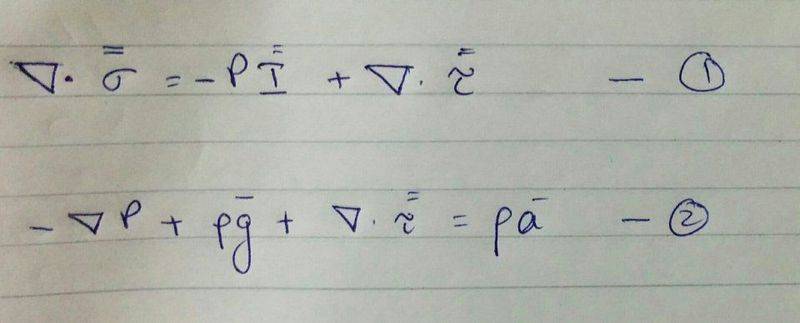 ∇· σ̿ = -P I̿ + ∇· τ̿ — ①
- ∇P + ρḡ + ∇· τ̿ = ρā — ②